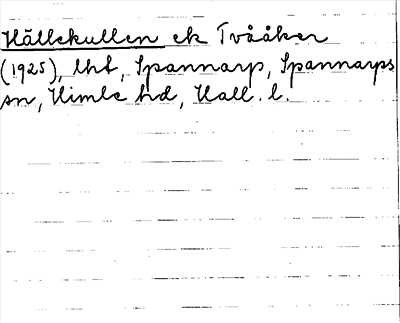 Hällekullen ek Tvååker
(1925), lht, Spannarp, Spannarps
sn, Himle hd, Hall. l.